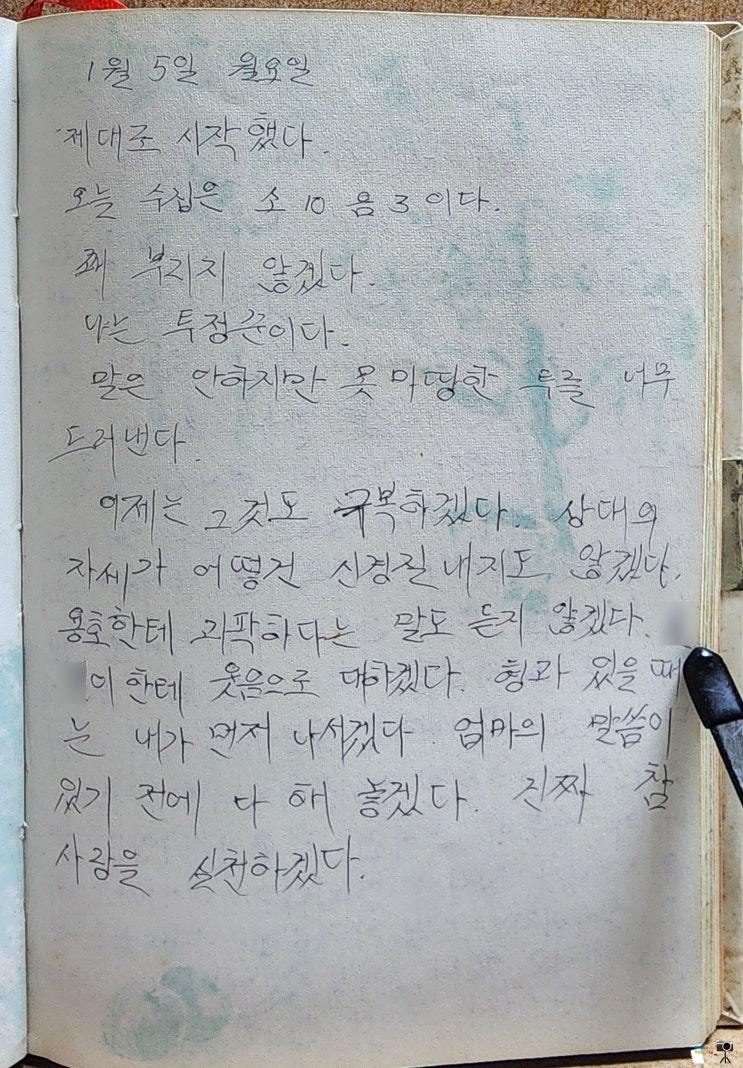 1월 5일 월요일
제대로 시작했다.
오늘 수집은 소 10 음 3 이다.
꽤 부리지 않겠다.
나는 투정꾼이다.
말은 안하지만 못마땅한 투를 너무
드러낸다.
이제는 그것도 극복하겠다. 상대의
자세가 어떻건 신경질 내지도 않겠다.
용호한테 괴팍하다는 말도 듣지 않겠다.
이한테 웃음으로 대하겠다. 형과 있을 때
는 내가 먼저 나서겠다. 엄마의 말씀이
있기 전에 다 해 놓겠다. 진짜 참
사랑을 실천하겠다.